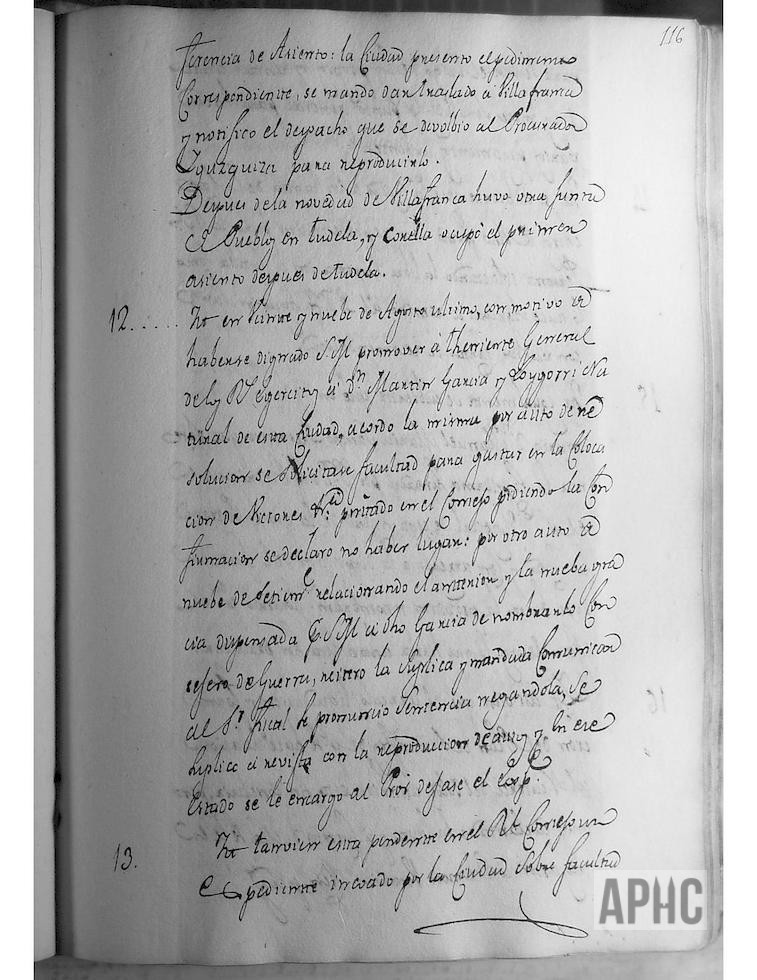 116
ferencia de Asiento: la Ciudad presento el pedimento
Correspondiente, se mando dar traslado a Villafranca
y notifico el despacho que se devolbio al Procurador
Yguzquiza para reproducirlo.
Despues dela novedad de Villafranca huvo otra Junta
de Pueblos en Tudela, y Corella ocupó el primer
asiento despues de Tudela.
12..... Yt en Veinte y nuebe de Agosto ultimo, con motivo de
haberse dignado S.M. promover à Theniente General
delos Rs Egercitos à Dn Martin Garcia y Loygorri Na
tural de esta Ciudad, acordo la misma por auto de re
solucion se solicitase facultad para gastar en la Coloca
cion de Vitores &ra: prestado en el Consejo pidiendo la Con
firmacion se declaro no haber lugar: por otro auto de
nuebe de Setiemre relacionando el anterior y la nueba gra
cia dispensada por S.M. a dho Garcia de nombrarlo Con
sejero de Guerra, reitero la suplica y mandada Comunicar
al Sr. fiscal se pronuncio Sentencia negandola, se
suplico à revista con la reproduccion de autos y en ese
estado se le encargo al Pror dejase el Expte.
13. Yt tanvien esta pendiente en el Rl Consejo un
Espediente incoado por la Ciudad sobre facultad
APHC